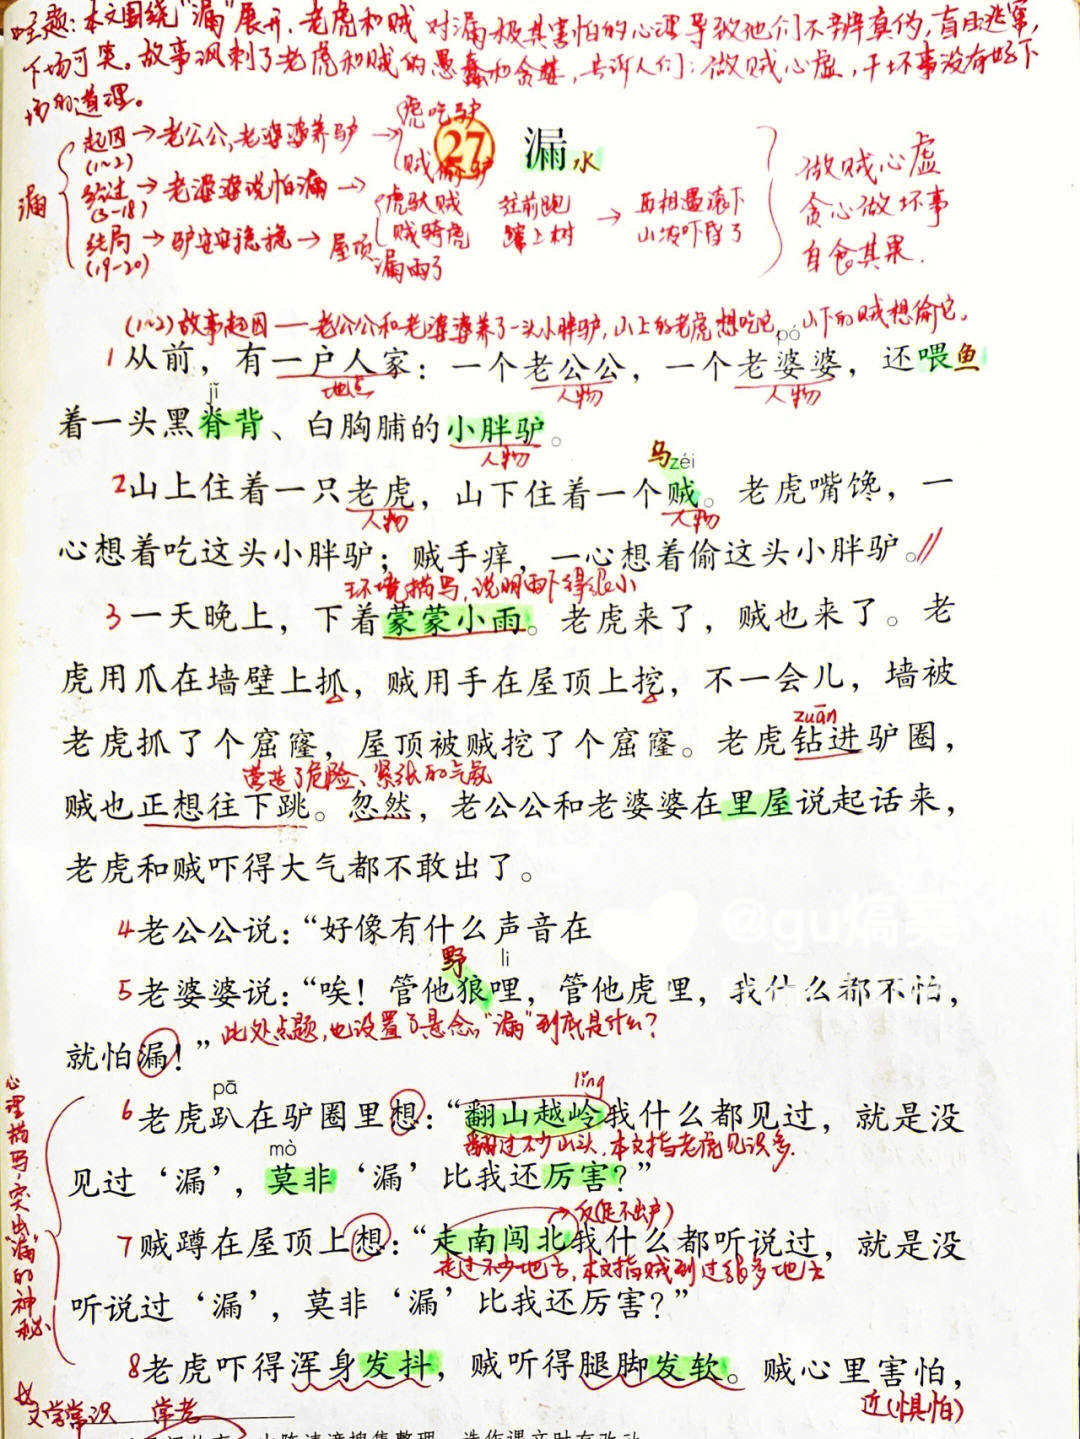 主题：本文围绕“漏”展开，老虎和贼对漏极其害怕的心理导致他们不辨真伪，盲目逃窜，
下场可笑。故事讽刺了老虎和贼的愚蠢和贪婪，告诉人们：做贼心虚，干坏事没有好下
场的道理。
漏
起因→老公公,老婆婆养驴→虎吃驴
(1~2)
贼偷驴
27 漏水
经过→老婆婆说怕漏→虎驮贼 往前跑→再相遇滚下
(3-18)
贼骑虎 蹿上树 山坡吓昏了
结局→驴安安稳稳→屋顶漏雨了
(19-20)
做贼心虚
贪心做坏事
自食其果.
(1~2)故事起因——老公公和老婆婆养了一头小胖驴,山上的老虎想吃它,山下的贼想偷它.
pó
1从前，有一户人家：一个老公公，一个老婆婆，还喂鱼
地点 人物 人物
jǐ
着一头黑脊背、白胸脯的小胖驴。
人物
马 zéi
2山上住着一只老虎，山下住着一个贼。老虎嘴馋，一
人物 人物
心想着吃这头小胖驴；贼手痒，一心想着偷这头小胖驴。//
环境描写,说明雨下得很小
3一天晚上，下着蒙蒙小雨。老虎来了，贼也来了。老
虎用爪在墙壁上抓，贼用手在屋顶上挖，不一会儿，墙被
zuān
老虎抓了个窟窿，屋顶被贼挖了个窟窿。老虎钻进驴圈，
营造了危险、紧张的气氛
贼也正想往下跳。忽然，老公公和老婆婆在里屋说起话来，
老虎和贼吓得大气都不敢出了。
@gu熇
4老公公说：“好像有什么声音在
野 li
5老婆婆说：“唉！管他狼哩，管他虎哩，我什么都不怕，
就怕漏！”此处点题,也设置了悬念,“漏”到底是什么?
心理描写,突出“漏”的神秘
pā lǐng
6老虎趴在驴圈里想：“翻山越岭我什么都见过，就是没
翻过不少山头,本文指老虎见识多.
mò
见过‘漏’，莫非‘漏’比我还厉害？”
→反(足不出户)
7贼蹲在屋顶上想：“走南闯北我什么都听说过，就是没
走过不少地方,本文指贼到过很多地方
听说过‘漏’，莫非‘漏’比我还厉害？”
8老虎吓得浑身发抖，贼听得腿脚发软。贼心里害怕，
近(惧怕)
文学常识 常考